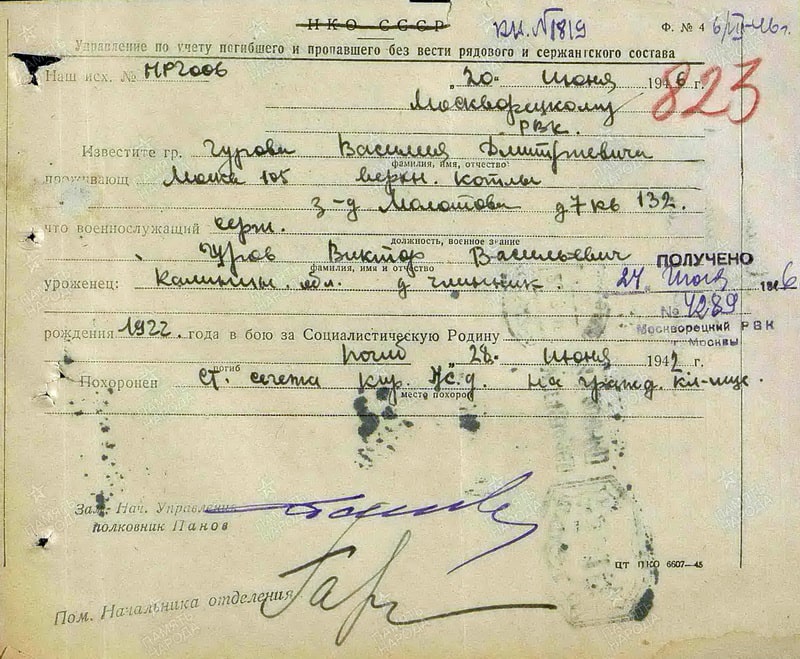 НКО СССР
вх. №1819
Ф. № 4
Управление по учету погибшего и пропавшего без вести рядового и сержантского состава
Наш исх. №
„20“ июня 1946 г.
823
Москворецкому
РВК.
Известите гр. Гурова Василия Дмитриевича
фамилия, имя, отчество
проживающ Москва 105 верхн. котлы
з-д Молотова д 7 кв 132.
что военнослужащий серж.
должность, военное звание
Гуров Виктор Васильевич
фамилия, имя и отчество
ПОЛУЧЕНО
уроженец: Калинин. обл. д глинник.
1946
№ 4289
Москворецкий РВК
г Москвы
рождения 1922. года в бою за Социалистическую Родину
погиб „28“ июня 1942 г.
погиб
Похоронен ст. на гражд. кл-ще.
место похорон
Зам. Нач. Управления
полковник Панов
Пом. Начальника отделения
ЦТ НКО 6607—45
ПАМЯТЬ НАРОДА